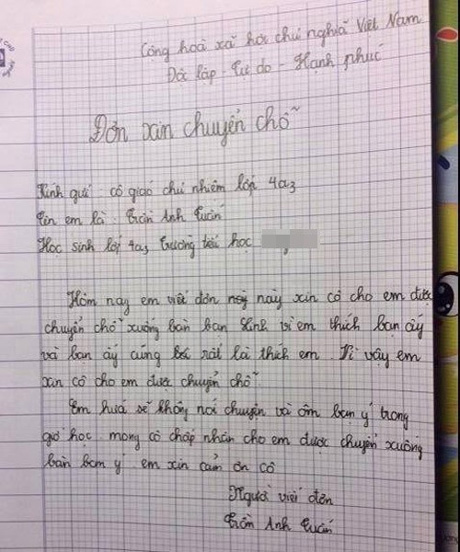 Cộng hoà xã hội chủ nghĩa Việt Nam
Độc lập - Tự do - Hạnh phúc
Đơn xin chuyển chỗ
Kính gửi : cô giáo chủ nhiệm lớp 4a3
Tên em là : Trần Anh Tuấn
Học sinh lớp 4a3 trường tiểu học
Hôm nay em viết đơn này xin cô cho em được
chuyển chỗ xuống bàn bạn Linh vì em thích bạn ấy
và bạn ấy cũng rất là thích em. Vì vậy em
xin cô cho em được chuyển chỗ.
Em hứa sẽ không nói chuyện và ôm bạn ý trong
giờ học. mong cô chấp nhân cho em được chuyển xuống
bàn bạn ý . em xin cảm ơn cô
Người viết đơn
Trần Anh Tuấn